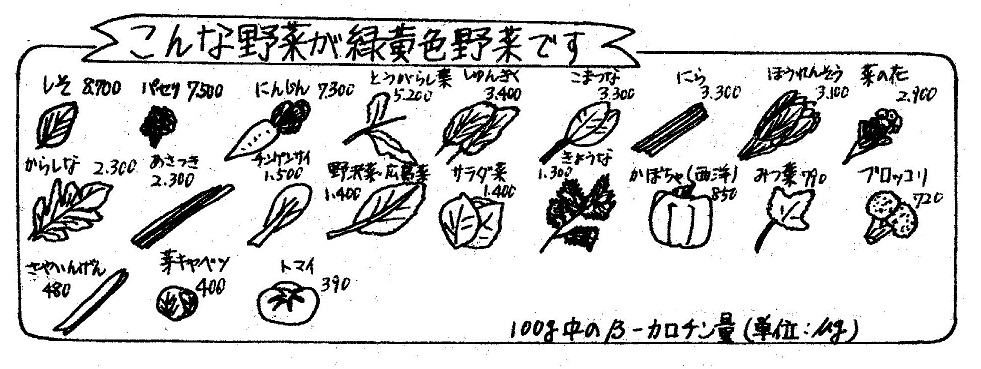 こんな野菜が緑黄色野菜です
しそ 8.700
パセリ 7.500
にんじん 7.300
とうがらし葉
5.200
しゅんぎく
3.400
こまつな
3.300
にら
3.300
ほうれんそう
3.100
菜の花
2.900
からしな
2.300
あさつき
2.300
チンゲンサイ
1.500
野沢菜・広島菜
1.400
サラダ菜
1.400
きょうな
1.300
かぼちゃ(西洋)
850
みつ葉 790
ブロッコリ
720
さやいんげん
480
芽キャベツ
400
トマト
390
100g中のβ-カロチン量(単位:μg)